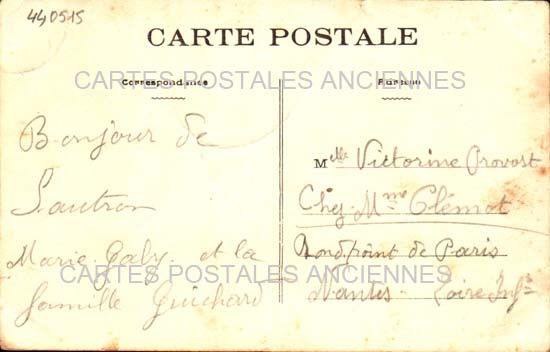 440515
CARTE POSTALE
CARTES POSTALES ANCIENNES
Correspondance
Adresse
Bonjour de
Sautron
Marie Gaby et la
famille Guichard
Mlle Victorine Provost
Chez Mme Clémot
Rond point de Paris
Nantes - Loire Infre
CARTES POSTALES ANCIENNES